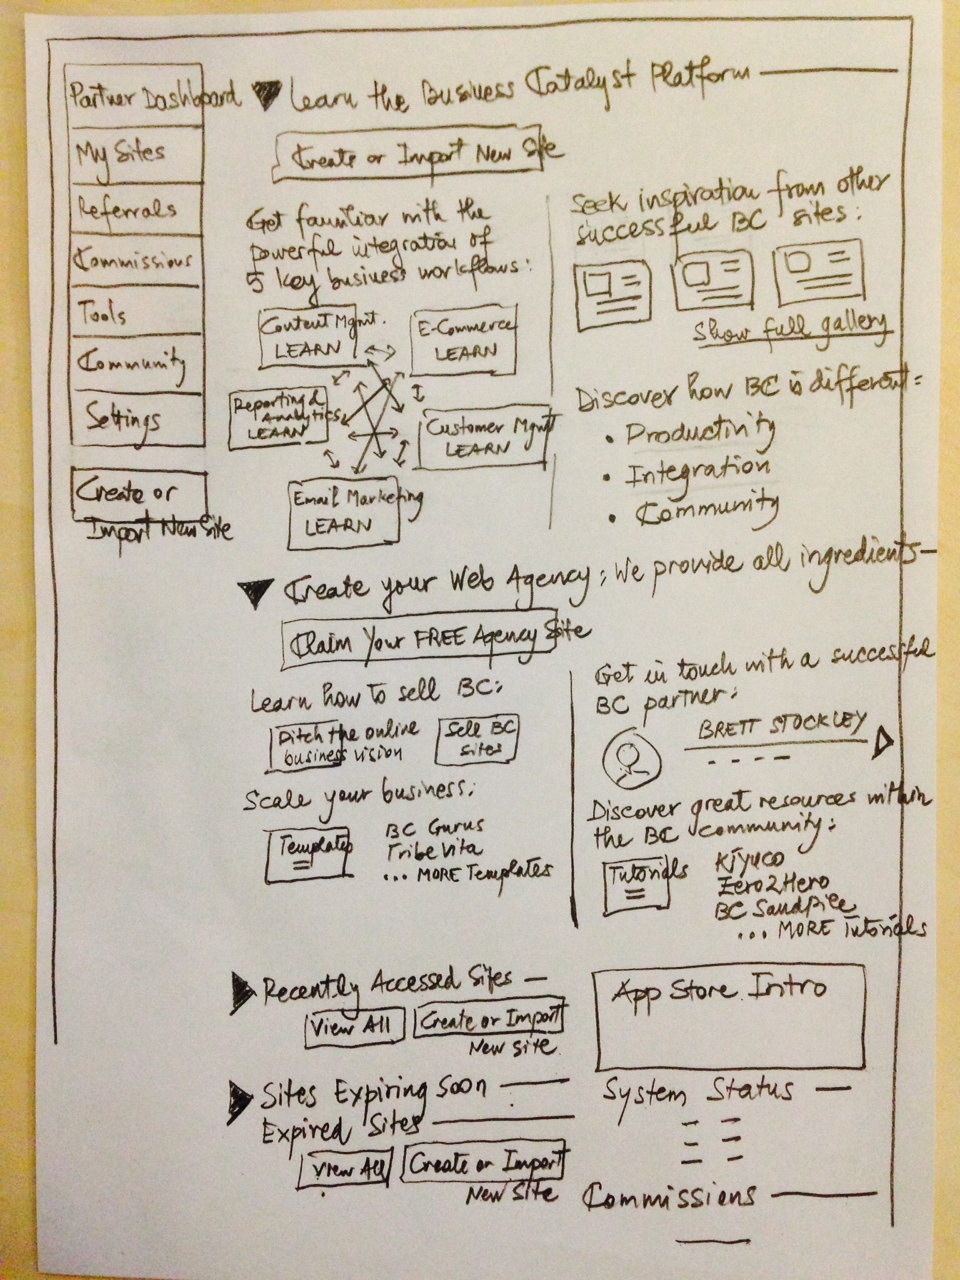 Partner Dashboard
My Sites
Referrals
Commissions
Tools
Community
Settings
Create or
Import New Site
Learn the Business Catalyst Platform
Create or Import New Site
Get familiar with the
powerful integration of
5 key business workflows:
Content Mgmt.
LEARN
E-Commerce
LEARN
Reporting &
Analytics
LEARN
Customer Mgmt
LEARN
Email Marketing
LEARN
Seek inspiration from other
successful BC sites:
Show full gallery
Discover how BC is different:
• Productivity
• Integration
• Community
Create your Web Agency: We provide all ingredients
Claim Your FREE Agency Site
Learn how to sell BC:
Pitch the online
business vision
Sell BC
sites
Scale your business:
Templates
BC Gurus
Tribe Vita
... MORE Templates
Get in touch with a successful
BC partner:
BRETT STOCKLEY
Discover great resources within
the BC community:
Tutorials
Kiyuco
Zero2Hero
BC SandPile
... MORE Tutorials
Recently Accessed Sites
View All
Create or Import
New Site
Sites Expiring Soon
Expired Sites
View All
Create or Import
New Site
App Store Intro
System Status
Commissions